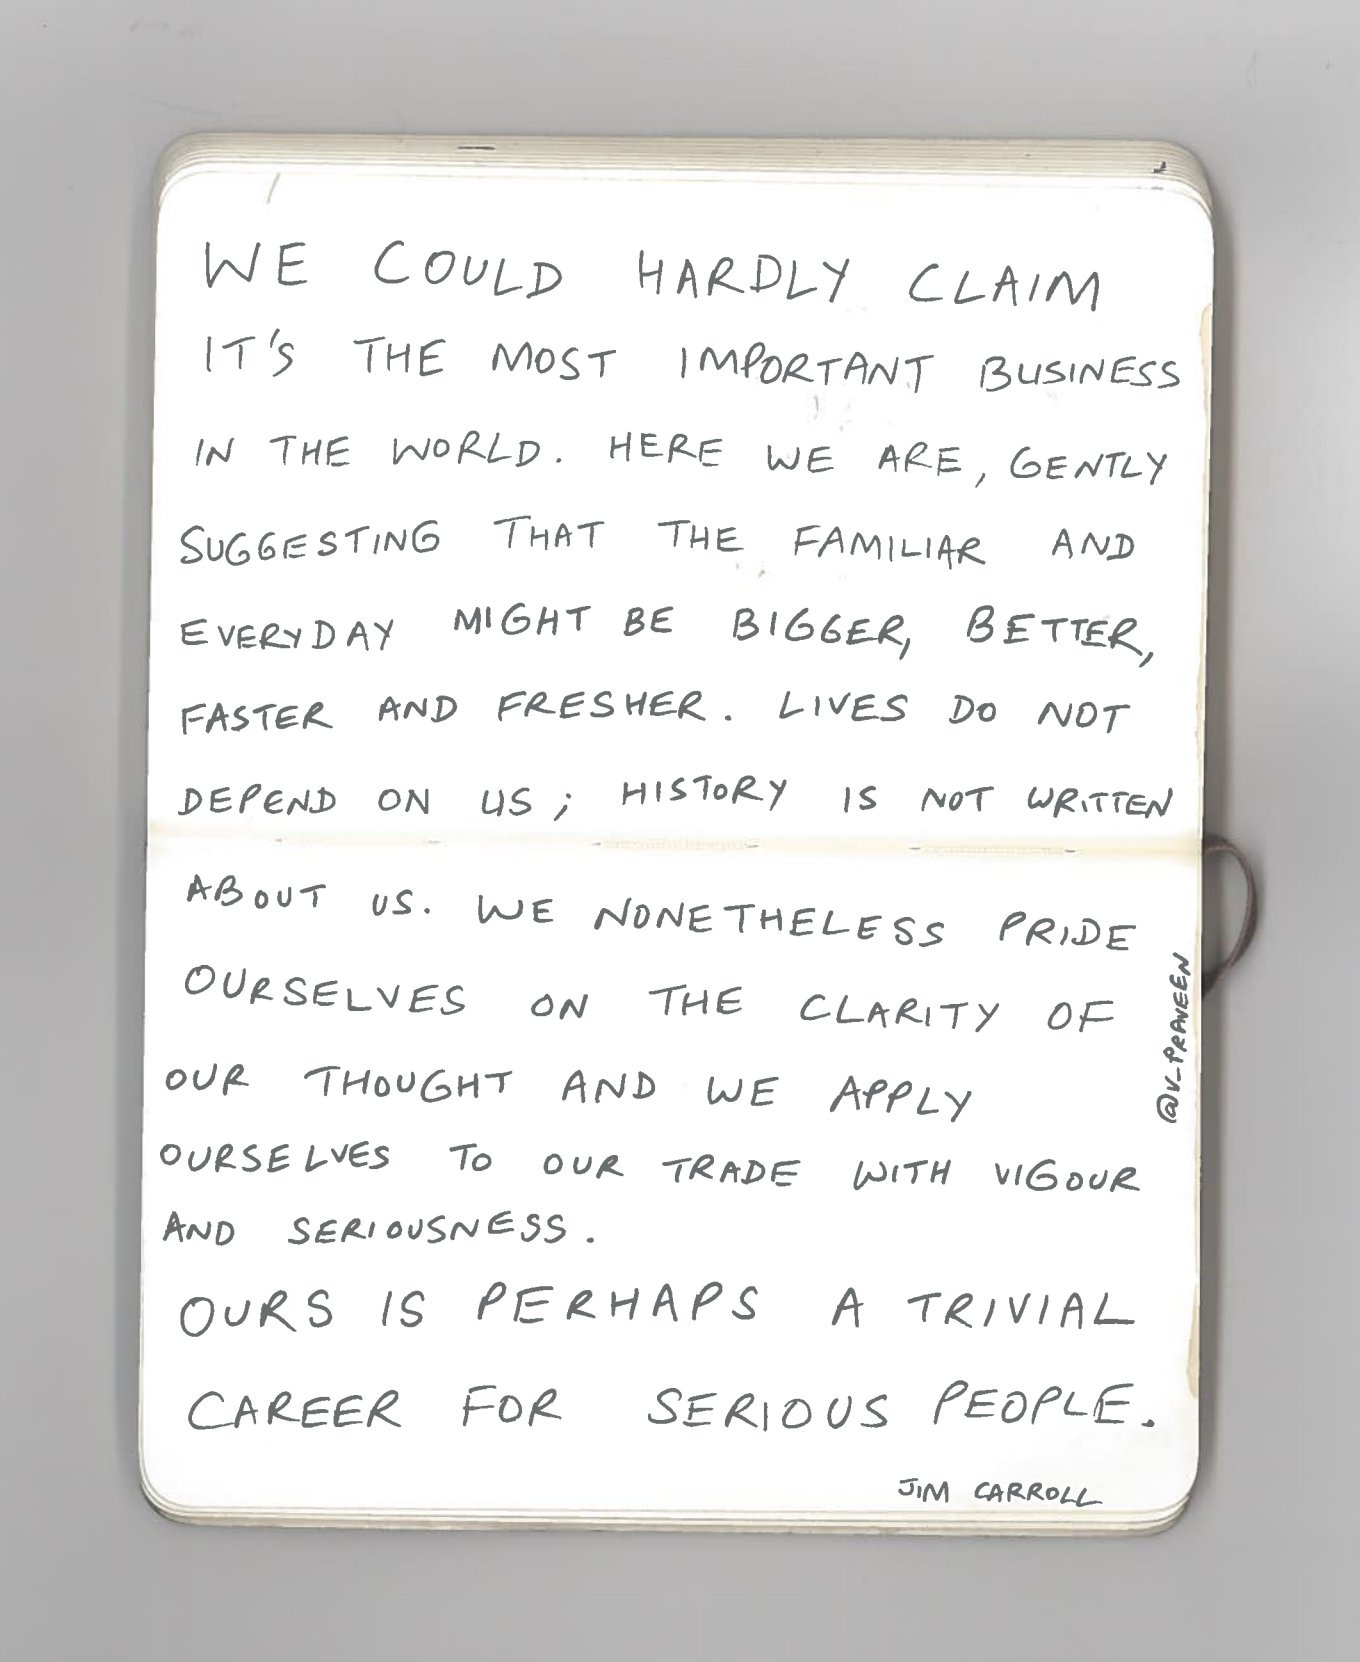 WE COULD HARDLY CLAIM
IT'S THE MOST IMPORTANT BUSINESS
IN THE WORLD. HERE WE ARE, GENTLY
SUGGESTING THAT THE FAMILIAR AND
EVERYDAY MIGHT BE BIGGER, BETTER,
FASTER AND FRESHER. LIVES DO NOT
DEPEND ON US; HISTORY IS NOT WRITTEN
ABOUT US. WE NONETHELESS PRIDE
OURSELVES ON THE CLARITY OF
OUR THOUGHT AND WE APPLY
OURSELVES TO OUR TRADE WITH VIGOUR
AND SERIOUSNESS.
OURS IS PERHAPS A TRIVIAL
CAREER FOR SERIOUS PEOPLE.
JIM CARROLL
@V_PRAVEEN